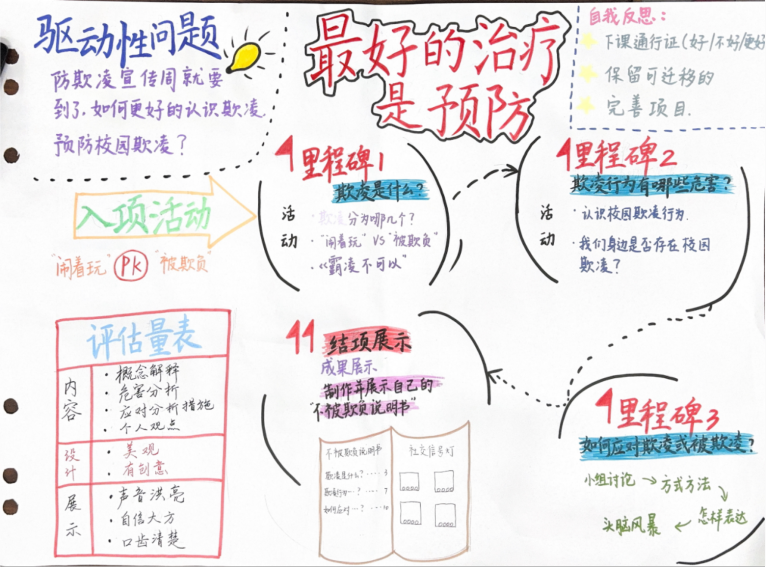 驱动性问题
防欺凌宣传周就要
到了.如何更好的认识欺凌.
预防校园欺凌？
最好的治疗
是预防
自我反思：
下课通行证(好/不好/更好
保留可迁移的
完善项目.
入项活动
"闹着玩" PK "被欺负"
里程碑1
欺凌是什么？
活动
·欺凌分为哪几个？
·"闹着玩" VS "被欺负"
·《霸凌不可以"
里程碑2
欺凌行为有哪些危害？
活动
·认识校园欺凌行为.
·我们身边是否存在校园
欺凌？
里程碑3
如何应对欺凌或被欺凌？
小组讨论 → 方式方法
怎样表达
头脑风暴
结项展示
成果展示
制作并展示自己的
"不被欺负说明书"
不被欺负说明书
欺凌是什么？····3
欺凌行为··？···7
如何应对··？··10
社交信号灯
评估量表
内容
·概念解释
·危害分析
·应对分析措施
·个人观点
设计
·美观
·有创意
展示
·声音洪亮
·自信大方
·口齿清楚